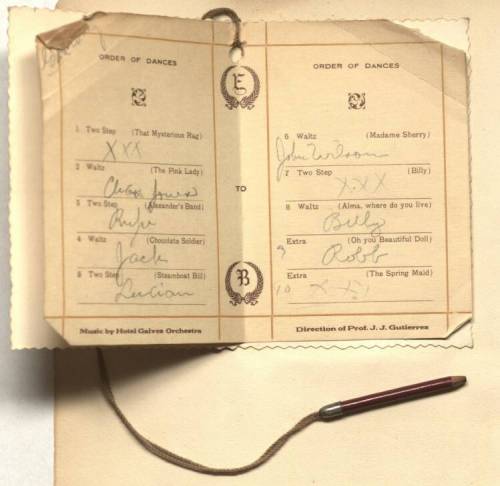 ORDER OF DANCES
1 Two Step (That Mysterious Rag)
XXX
2 Waltz (The Pink Lady)
Jones
3 Two Step (Alexander's Band)
Rufe
4 Waltz (Chocolate Soldier)
Jack
5 Two Step (Steamboat Bill)
Lucian
Music by Hotel Galvez Orchestra
E
TO
B
ORDER OF DANCES
6 Waltz (Madame Sherry)
John Wilson
7 Two Step (Billy)
X.X.X
8 Waltz (Alma, where do you live)
Billy
9 Extra (Oh you Beautiful Doll)
Robb
Extra (The Spring Maid)
10 X X X
Direction of Prof. J. J. Gutierrez